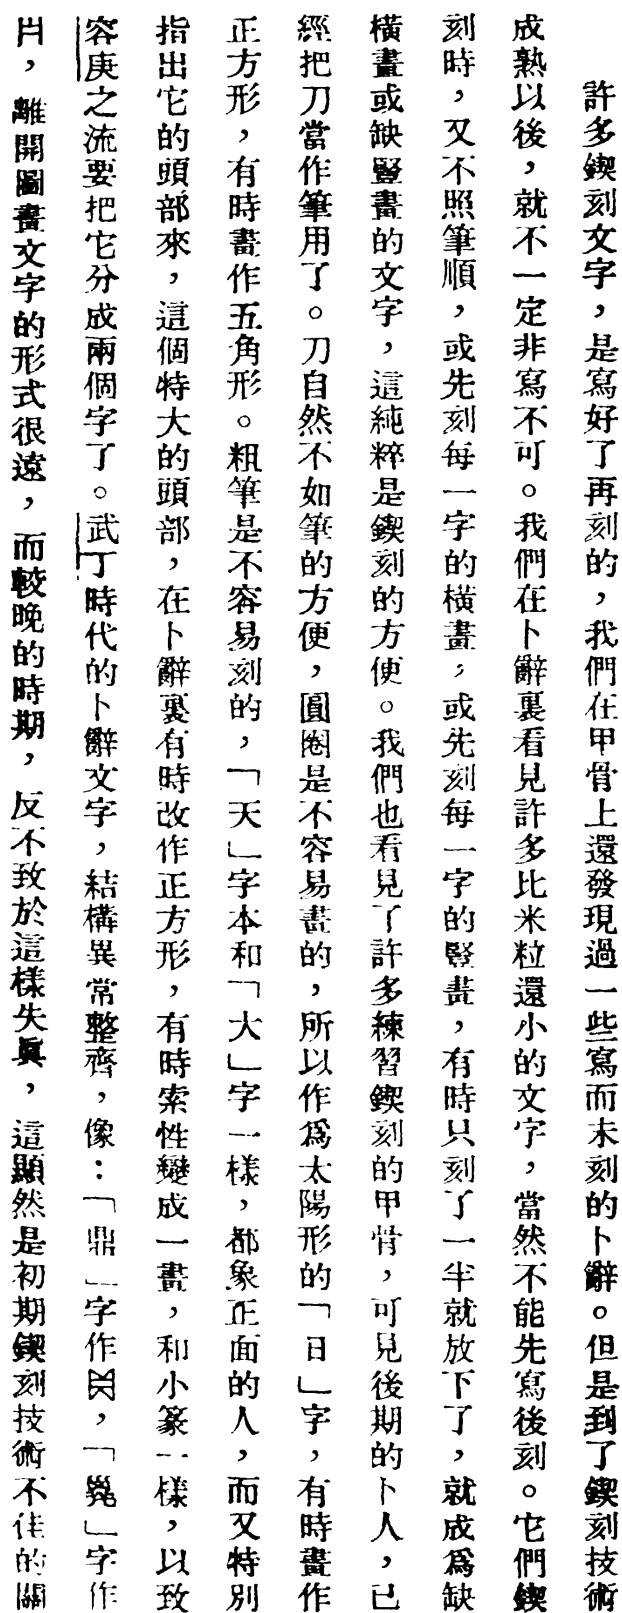 許多鍥刻文字，是寫好了再刻的，我們在甲骨上還發現過一些寫而未刻的卜辭。但是到了鍥刻技術
成熟以後，就不一定非寫不可。我們在卜辭裏看見許多比米粒還小的文字，當然不能先寫後刻。它們鍥
刻時，又不照筆順，或先刻每一字的橫畫，或先刻每一字的豎畫，有時只刻了一半就放下了，就成爲缺
橫畫或缺豎畫的文字，這純粹是鍥刻的方便。我們也看見了許多練習鍥刻的甲骨，可見後期的卜人，已
經把刀當作筆用了。刀自然不如筆的方便，圓圈是不容易畫的，所以作爲太陽形的「日」字，有時畫作
正方形，有時畫作五角形。粗筆是不容易刻的，「天」字本和「大」字一樣，都象正面的人，而又特別
指出它的頭部來，這個特大的頭部，在卜辭裏有時改作正方形，有時索性變成一畫，和小篆一樣，以致
容庚之流要把它分成兩個字了。武丁時代的卜辭文字，結構異常整齊，像：「鼎」字作，「㲋」字作
，離開圖畫文字的形式很遠，而較晚的時期，反不致於這樣失眞，這顯然是初期鍥刻技術不佳的關